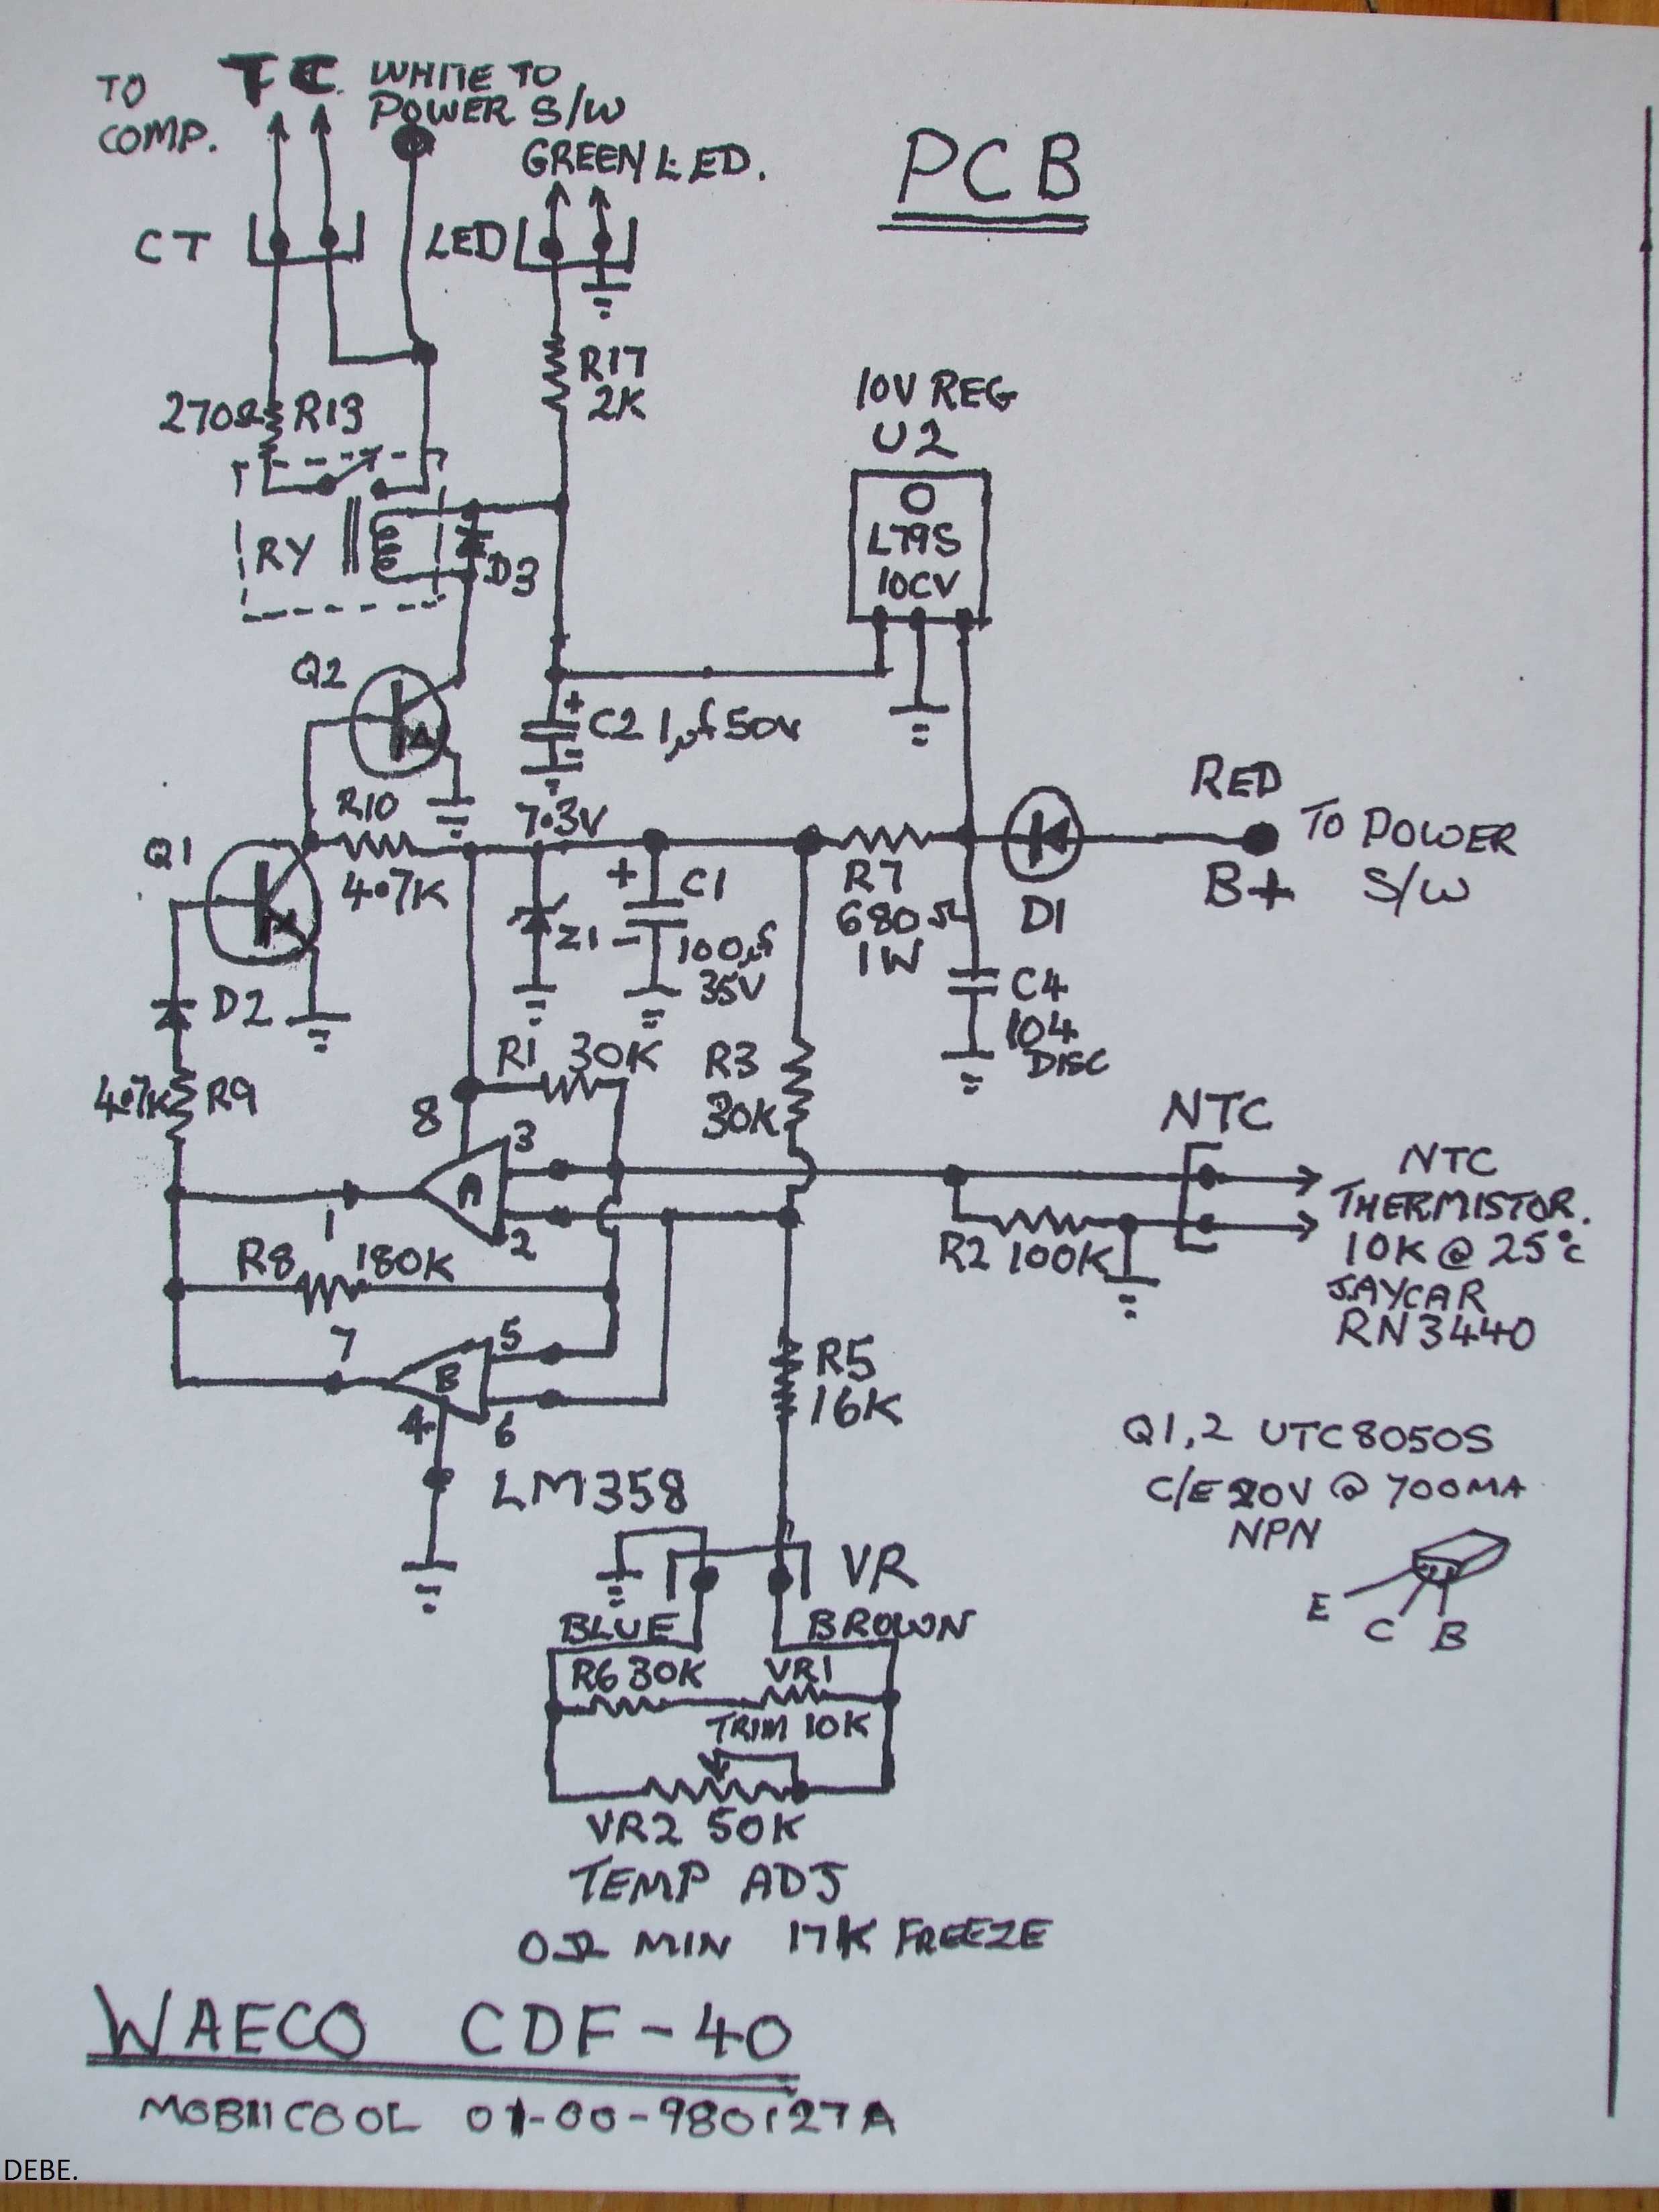 TO
COMP.
T C
WHITE TO
POWER S/W
GREEN LED.
PCB
CT
LED
R17
2K
10V REG
U2
270Ω R13
L79S
10CV
RY
D3
Q2
C2 1μf 50V
RED
TO POWER
S/W
B+
R10
4.7K
7.3V
Q1
+ C1
100μf
35V
Z1
R7
680Ω
1W
D1
D2
C4
104
DISC
R1 30K
R3
30K
4.7K R9
8
3
A
1
2
NTC
NTC
THERMISTOR.
10K @ 25°C
JAYCAR
RN3440
R2 100K
R8 180K
7
5
B
4
6
R5
16K
LM358
Q1,2 UTC8050S
C/E 20V @ 700MA
NPN
E C B
VR
BLUE
BROWN
R6 30K
VR1
TRIM 10K
VR2 50K
TEMP ADJ
0Ω MIN 17K FREEZE
WAECO CDF-40
01-00-980127A
DEBE.